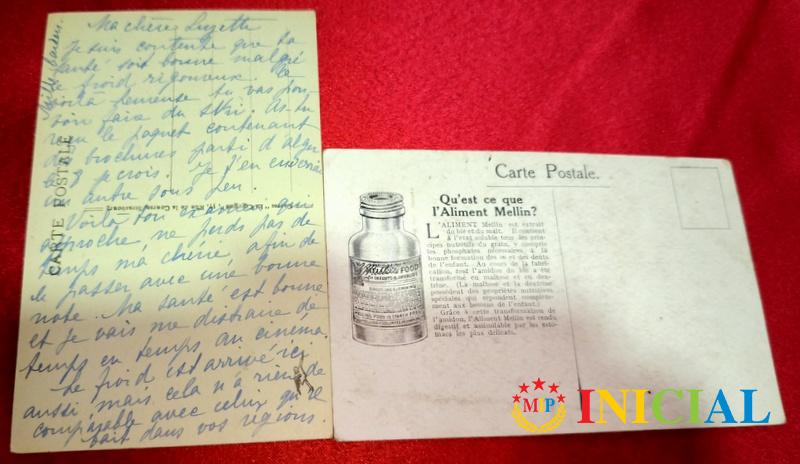 Ma chère Suzette
Je suis contente que ta
santé soit bonne malgré
le froid rigoureux. Te
voilà heureuse tu vas pou-
voir faire du ski. As-tu
reçu le paquet contenant
des brochures parti d'alger
le 8 je crois. Je t'en enverrai
un autre sous peu.
Voilà ton examen qui
approche, ne perds pas de
temps ma chérie, afin de
le passer avec une bonne
note. Ma santé est bonne
et je vais me distraire de
temps en temps au cinéma.
Le froid est arrivé ici
aussi mais cela n'a rien de
comparable avec celui qu'il
fait dans vos régions.
Mille baisers
CARTE POSTALE
Carte Postale.
Qu'est ce que
l'Aliment Mellin?
L'ALIMENT Mellin est extrait
du blé et du malt. Il contient
à l'état soluble tous les prin-
cipes nutritifs du grain, y compris
les phosphates nécessaires à la
bonne formation des os et des dents
de l'enfant. Au cours de la fabri-
cation, tout l'amidon du blé a été
transformé en maltose et en dex-
trine. (La maltose et la dextrine
possèdent des propriétés nutritives
spéciales qui répondent complète-
ment aux besoins de l'enfant.)
Grâce à cette transformation de
l'amidon, l'Aliment Mellin est rendu
digestif et assimilable par les esto-
macs les plus délicats.
Mellin's FOOD
FOR INFANTS & INVALIDS
MIP
INICIAL